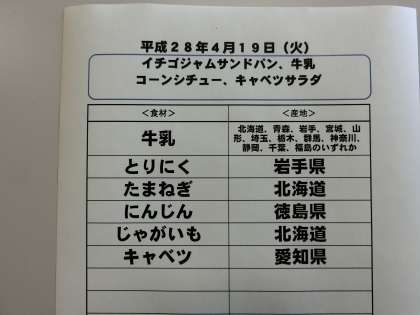 平成28年4月19日(火)
イチゴジャムサンドパン、牛乳
コーンシチュー、キャベツサラダ
<食材> <産地>
牛乳 北海道、青森、岩手、宮城、山
形、埼玉、栃木、群馬、神奈川、
静岡、千葉、福島のいずれか
とりにく 岩手県
たまねぎ 北海道
にんじん 徳島県
じゃがいも 北海道
キャベツ 愛知県